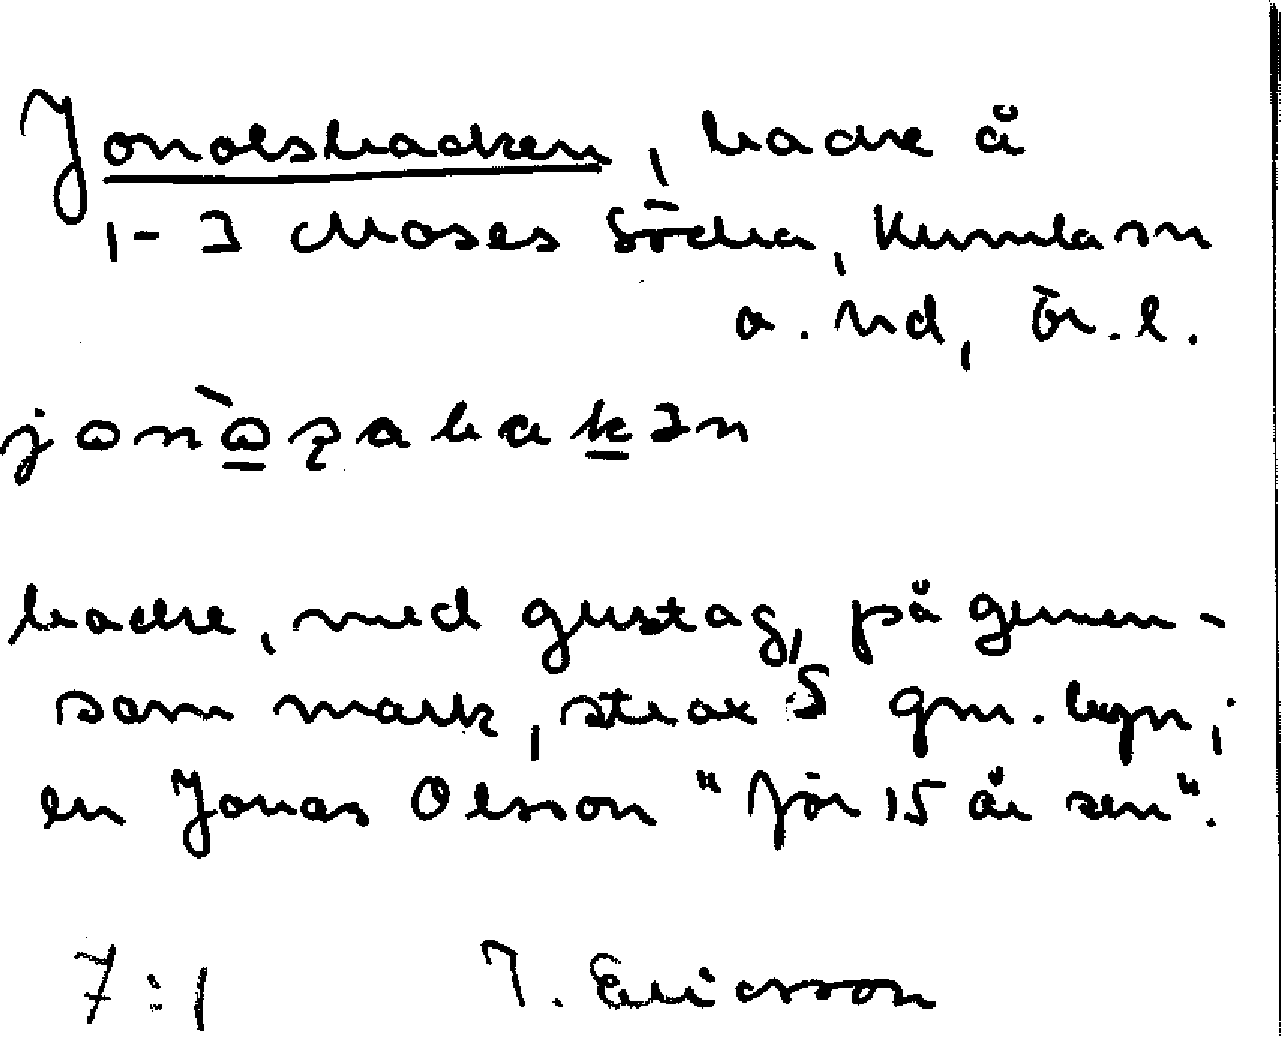 Jonolsbacken, backe å
1-3 Moses Södra, Kumla sn
a. nd, Ör. l.
backe, med grustag, på gemen-
sam mark, strax S om. byn;
en Jonas Olsson "för 15 år sen".
7:1 T. Ericsson